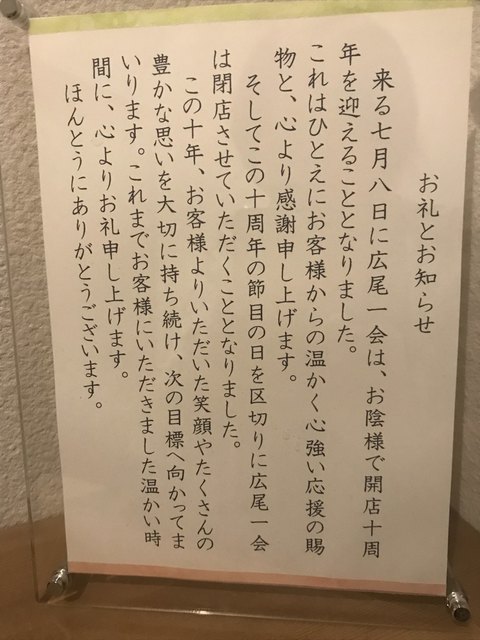 お礼とお知らせ
来る七月八日に広尾一会は、お陰様で開店十周
年を迎えることとなりました。
これはひとえにお客様からの温かく心強い応援の賜
物と、心より感謝申し上げます。
そしてこの十周年の節目の日を区切りに広尾一会
は閉店させていただくこととなりました。
この十年、お客様よりいただいた笑顔やたくさんの
豊かな思いを大切に持ち続け、次の目標へ向かってま
いります。これまでお客様にいただきました温かい時
間に、心よりお礼申し上げます。
ほんとうにありがとうございます。